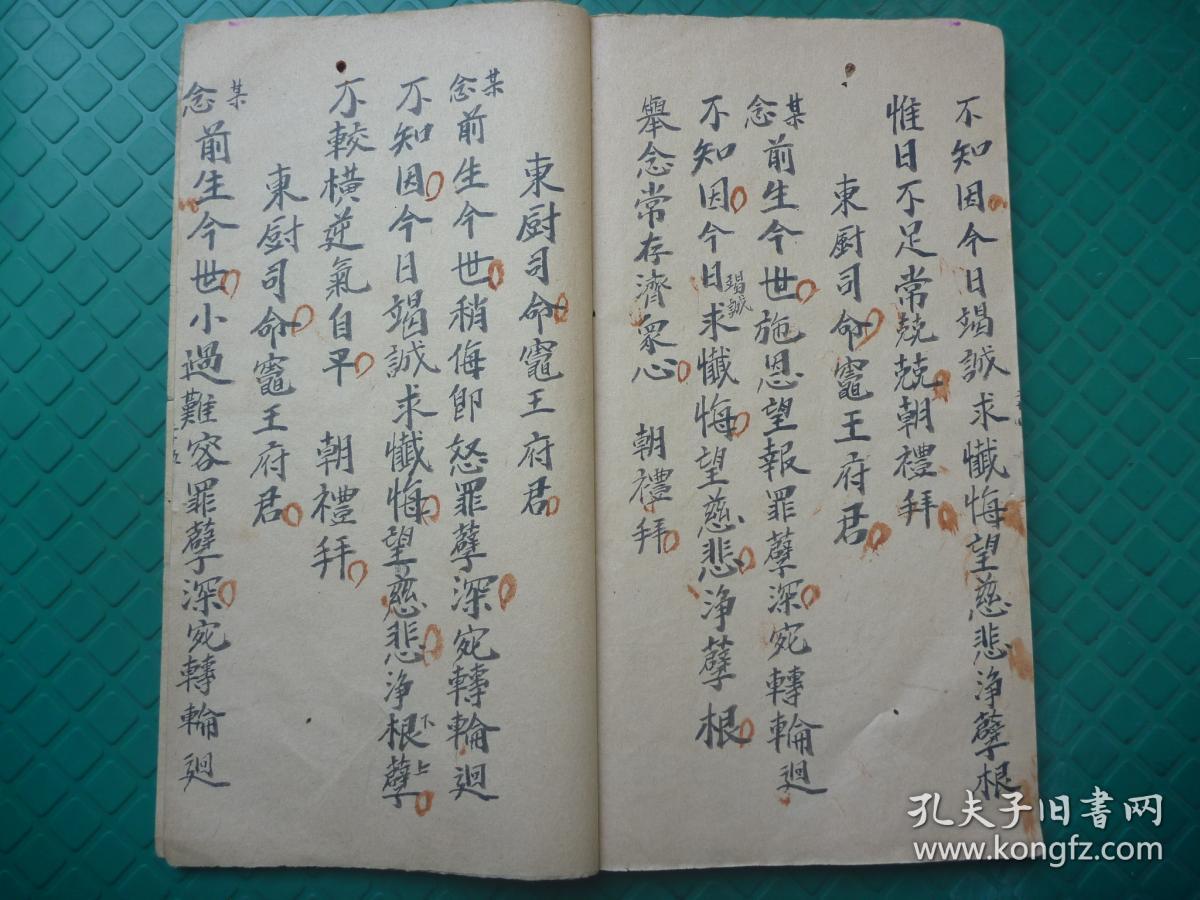 不知因今日竭誠求懺悔望慈悲淨孽根
惟日不足常兢兢朝禮拜
東厨司命竈王府君
某念前生今世施恩望報罪孽深宛轉輪廻
不知因今日竭誠求懺悔望慈悲淨孽根
舉念常存濟眾心 朝禮拜
東厨司命竈王府君
某念前生今世稍侮即怒罪孽深宛轉輪廻
不知因今日竭誠求懺悔望慈悲淨根下孽上
不較橫逆氣自平 朝禮拜
東厨司命竈王府君
某念前生今世小過難容罪孽深宛轉輪廻
孔夫子旧书网
www.kongfz.com